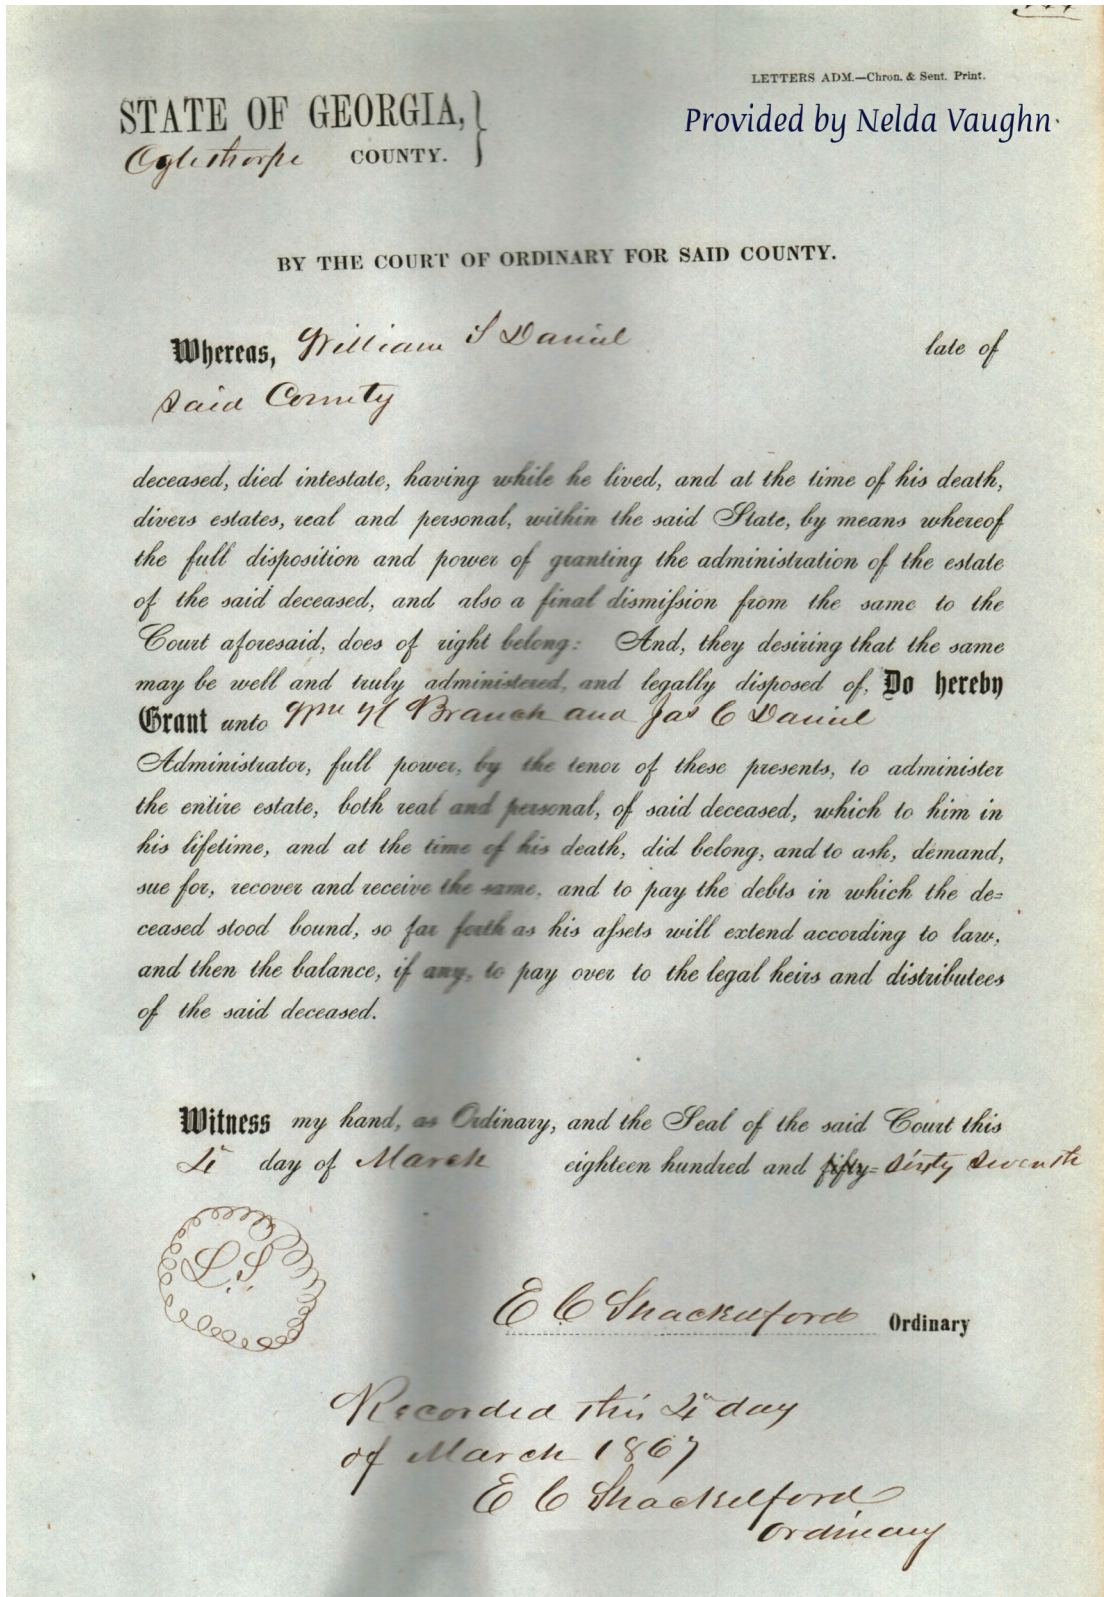 LETTERS ADM.—Chron. & Sent. Print.
STATE OF GEORGIA,
Provided by Nelda Vaughn
Oglethorpe COUNTY.
BY THE COURT OF ORDINARY FOR SAID COUNTY.
Whereas, William S Daniel late of
said County
deceased, died intestate, having while he lived, and at the time of his death,
divers estates, real and personal, within the said State, by means whereof
the full disposition and power of granting the administration of the estate
of the said deceased, and also a final dismission from the same to the
Court aforesaid, does of right belong: And, they desiring that the same
may be well and truly administered, and legally disposed of, Do hereby
Grant unto Wm H Branch and Jas C Daniel
Administrator, full power, by the tenor of these presents, to administer
the entire estate, both real and personal, of said deceased, which to him in
his lifetime, and at the time of his death, did belong, and to ask, demand,
sue for, recover and receive the same, and to pay the debts in which the de=
ceased stood bound, so far forth as his assets will extend according to law,
and then the balance, if any, to pay over to the legal heirs and distributees
of the said deceased.
Witness my hand, as Ordinary, and the Seal of the said Court this
4" day of March eighteen hundred and fifty= sixty seventh
L.S.
E C Shackelford Ordinary
Recorded this 4" day
of March 1867
E C Shackelford
Ordinary